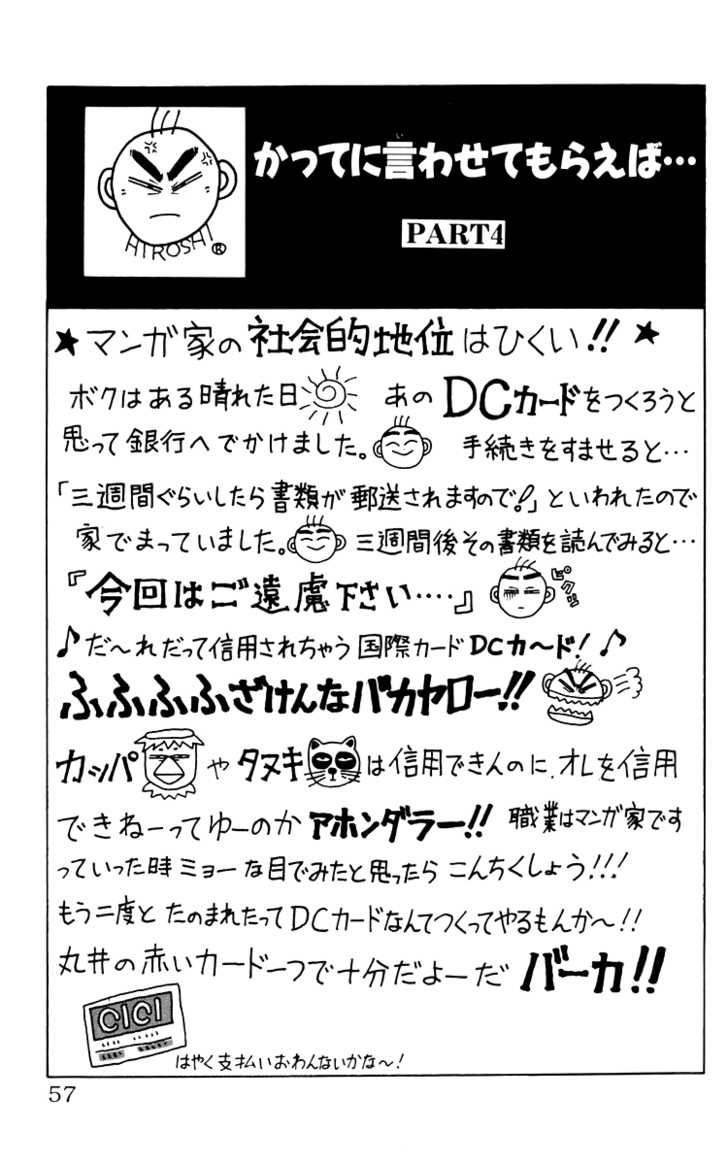 かってに言わせてもらえば…
PART4
HIROSHI®
★マンガ家の社会的地位はひくい!!★
ボクはある晴れた日 あのDCカードをつくろうと
思って銀行へでかけました。 手続きをすませると…
「三週間ぐらいしたら書類が郵送されますので!」といわれたので
家でまっていました。 三週間後その書類を読んでみると…
『今回はご遠慮下さい‥‥』 ピクッ
♪だ〜れだって信用されちゃう国際カードDCカ〜ド!♪
ふふふふざけんなバカヤロー!!
カッパやタヌキは信用できんのに、オレを信用
できねーってゆーのかアホンダラー!! 職業はマンガ家です
っていった時ミョーな目でみたと思ったらこんちくしょう!!!
もう二度とたのまれたってDCカードなんてつくってやるもんか〜!!
丸井の赤いカード一つで十分だよーだ バーカ!!
OIOI
はやく支払いおわんないかな〜!
57